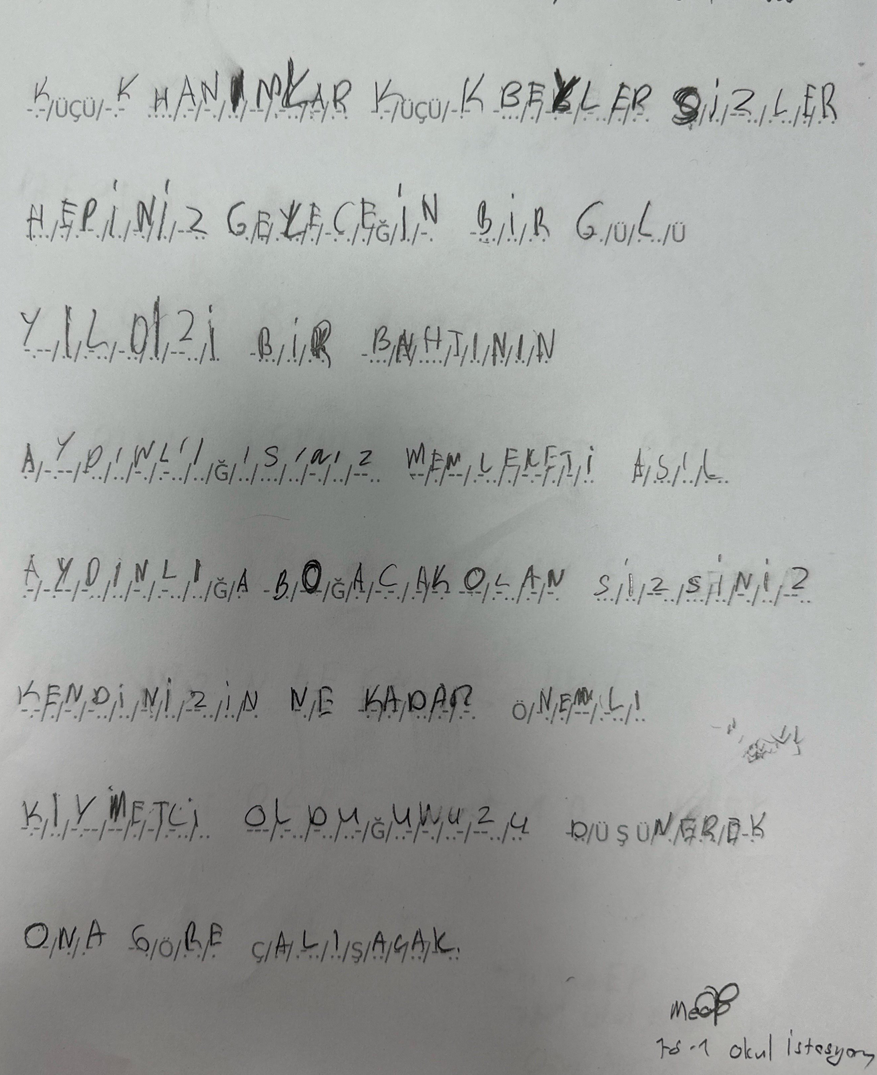 KÜÇÜK HANIMLAR KÜÇÜK BEYLER SİZLER
HEPİNİZ GELECEĞİN BİR GÜLÜ
YILDIZİ BİR BAHTININ
AYDINLIĞISINIZ MEMLEKETİ ASIL
AYDINLIĞA BOĞACAK OLAN SİZSİNİZ
KENDİNİZİN NE KADAR ÖNEMLI
KIYMETLİ OLDUĞUNUZU DÜŞÜNEREK
ONA GÖRE ÇALIŞACAK.
okul istasyon